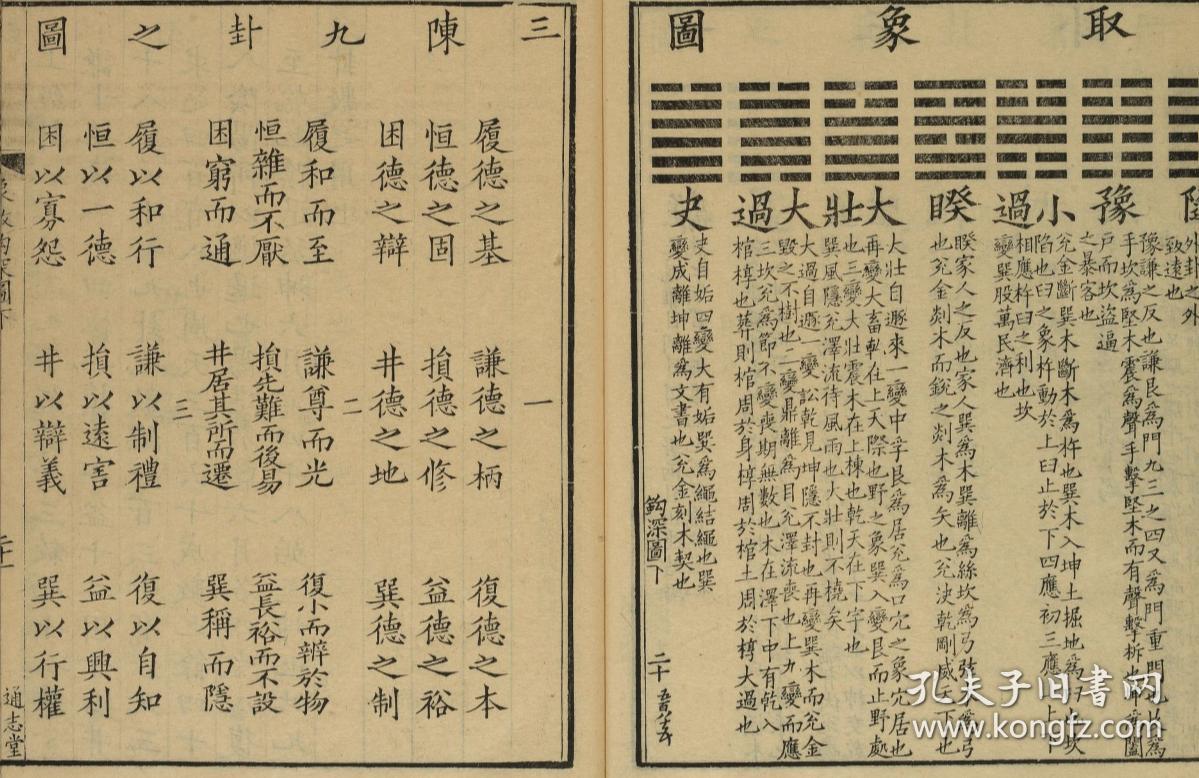 取象圖
外卦之外
致遠也
豫
豫謙之反也謙艮爲門九三之四又爲門重門也
手坎爲堅木震爲聲手擊堅木而有聲擊柝也
戶而坎盜逼
之暴客也
小過
兊金斷巽木斷木爲杵也巽木入坤土掘地爲臼坎
陷也臼之象杵動於上臼止於下四應初三應上
相應杵臼之利也坎
變巽股萬民濟也
睽
睽家人之反也家人巽爲木巽離爲絲坎爲弓弦木爲弓
也兊金剡木而銳之剡木爲矢也兊決乾剛威天下也
大壯
大壯自遯來一變中孚艮爲居兊爲口穴之象穴居也
再變大畜乾在上天際也野之象巽入變艮而止野處
也三變大壯震木在上棟也乾天在下宇也
巽風隱兊澤流待風雨也大壯則不橈矣
大過
大過自遯一變訟乾見坤隱不封也再變巽木而兊金
毀之不樹也二變鼎離爲目兊澤流喪也上九變而應
三坎兊爲節不變喪期無數也木在澤下中有乾入
棺椁也葬則棺周於身椁周於棺土周於椁大過也
夬
夬自姤四變大有姤巽爲繩結繩也巽
變成離坤離爲文書也兊金刻木契也
鈎深圖下 二十
三陳九卦之圖
一
履德之基 謙德之柄 復德之本
恒德之固 損德之修 益德之裕
困德之辯 井德之地 巽德之制
二
履和而至 謙尊而光 復小而辨於物
恒雜而不厭 損先難而後易 益長裕而不設
困窮而通 井居其所而遷 巽稱而隱
三
履以和行 謙以制禮 復以自知
恒以一德 損以遠害 益以興利
困以寡怨 井以辯義 巽以行權
通志堂
孔夫子旧书网
www.kongfz.com